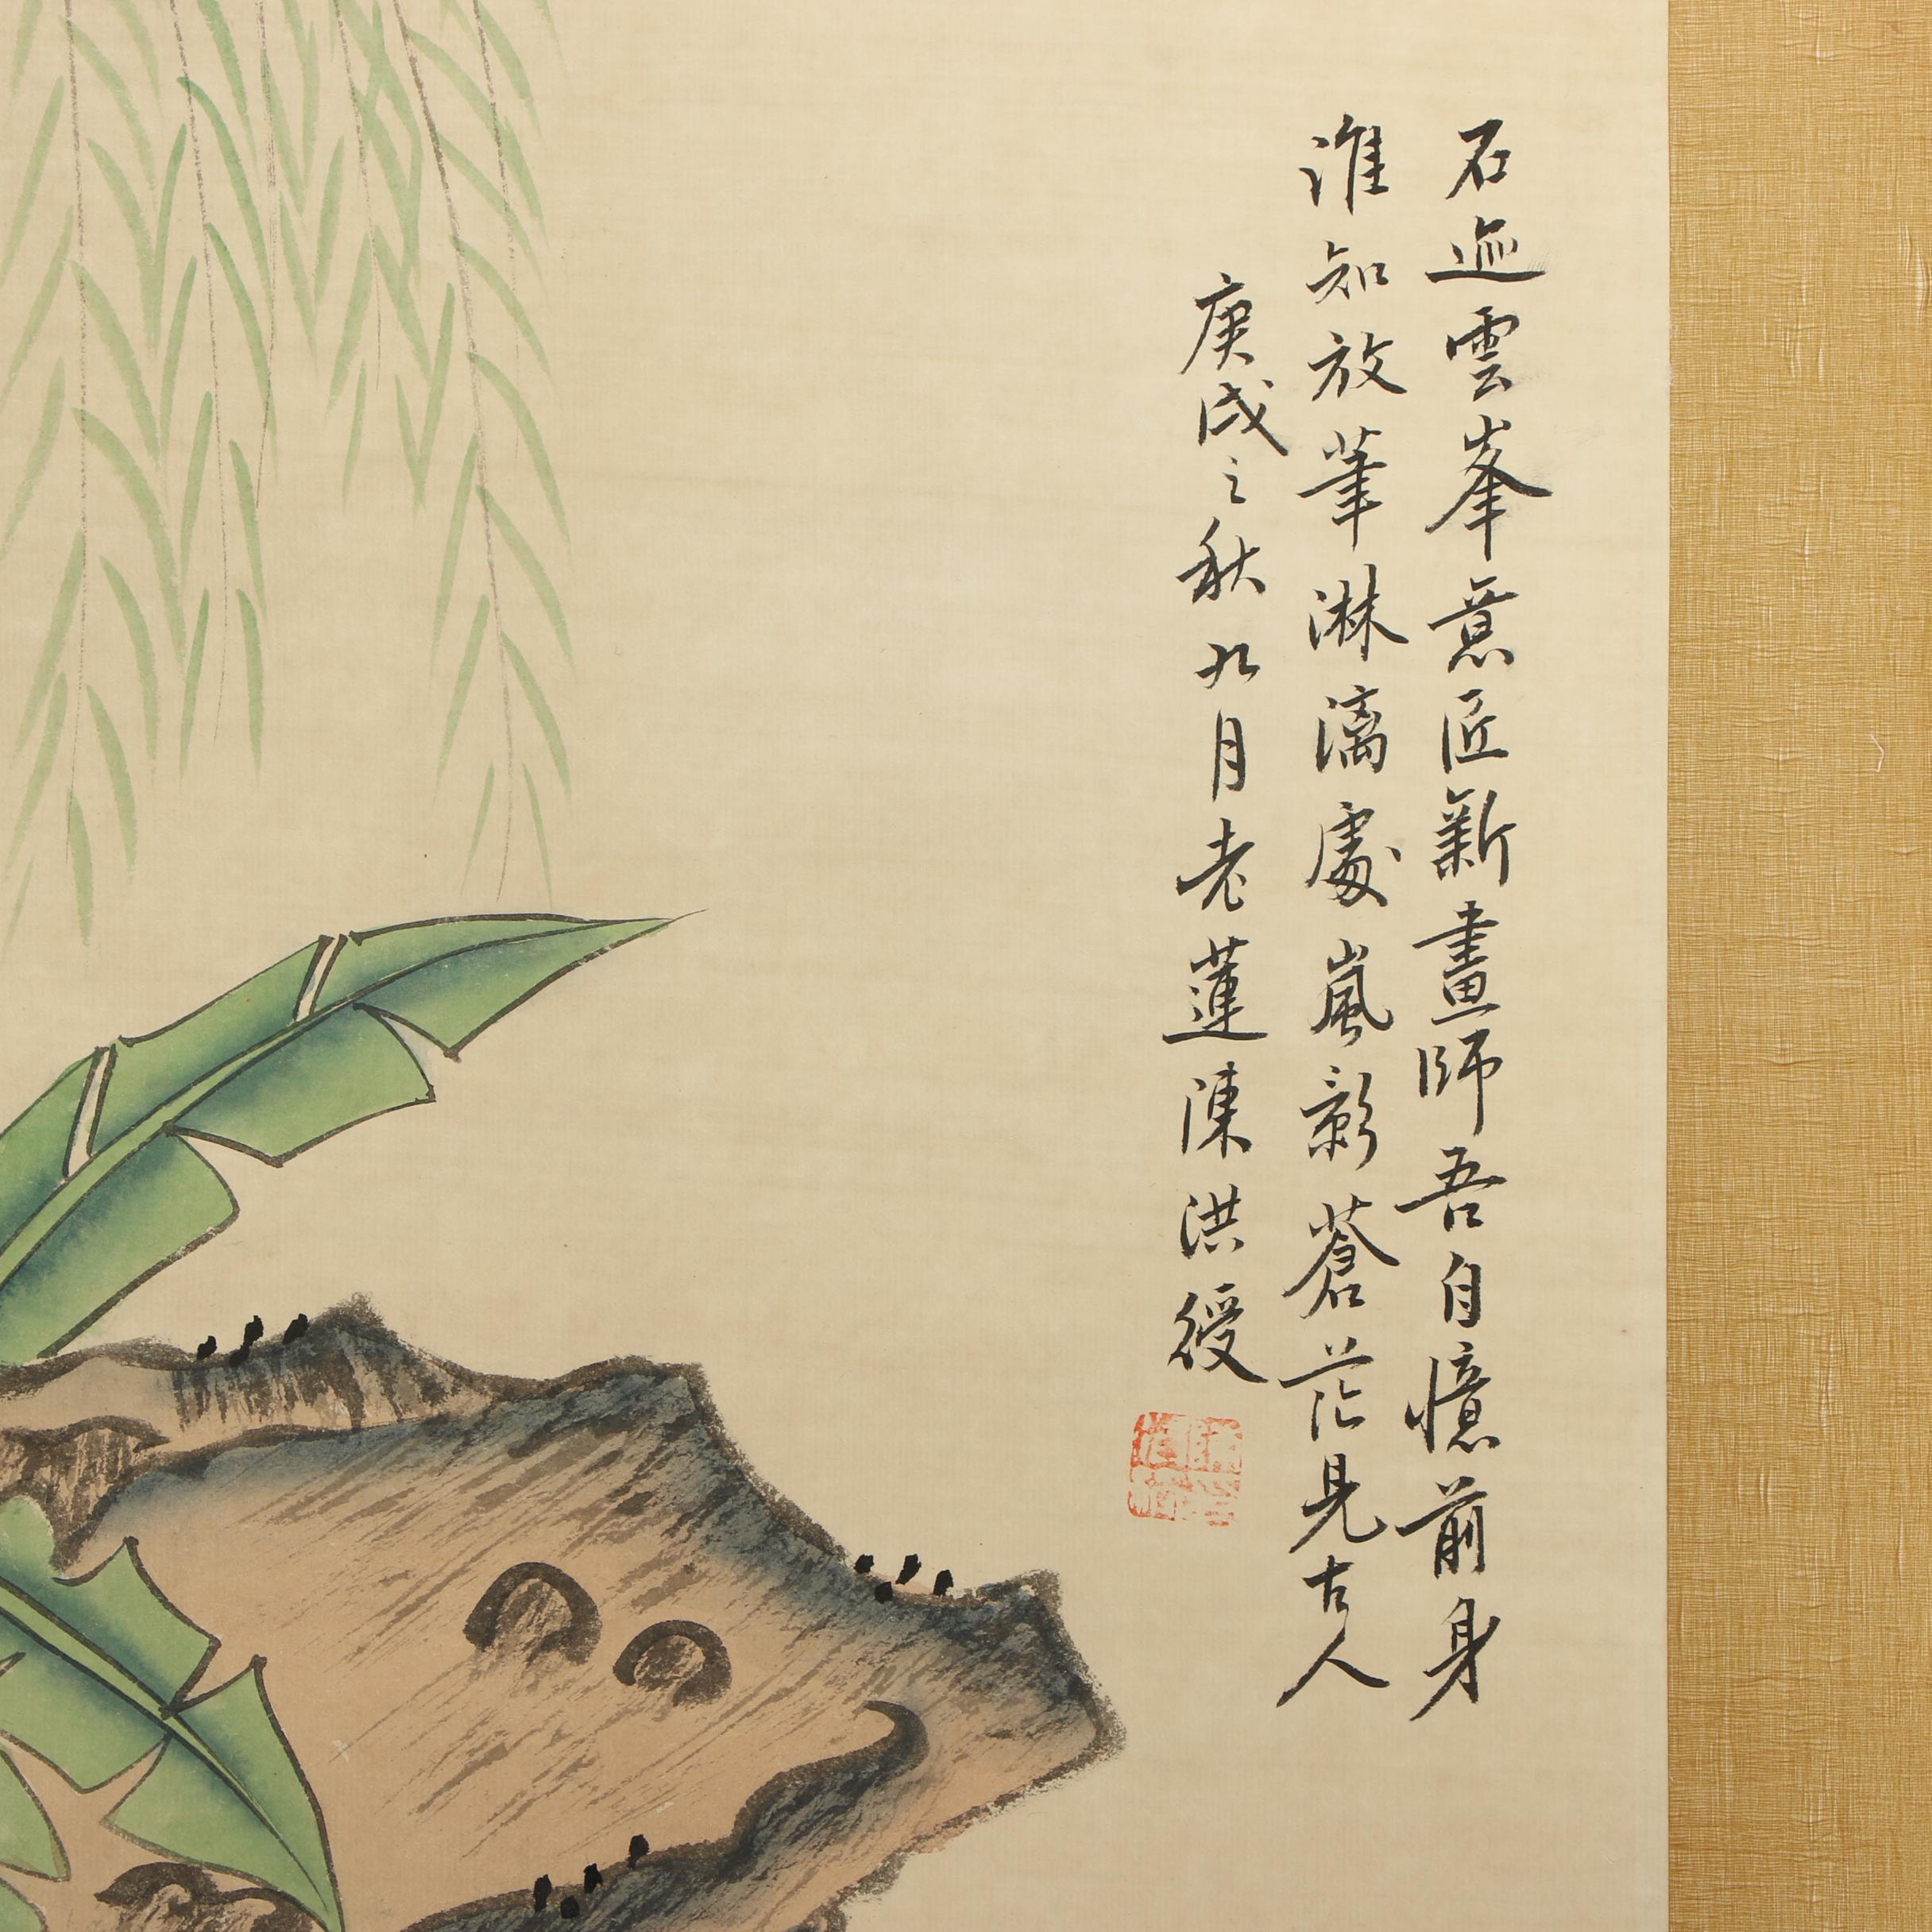 石迹雲峯意匠新畫師吾自憶前身
誰知放筆淋漓處嵐影蒼茫見古人
庚戌之秋九月老蓮陳洪綬